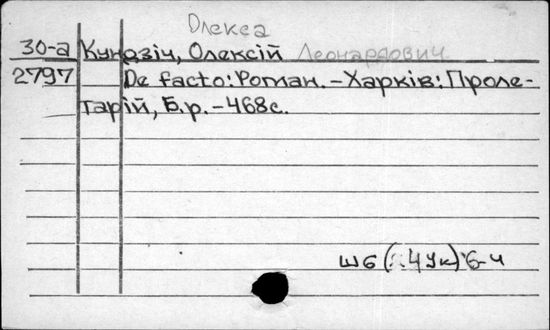 Олекса
30-а Кундзіч, Олексій Леонардович
2797 De facto: Роман. – Харків: Проле-
тарій, Б.р. – 468с.
Ш6 ( 4Ук) 6-4